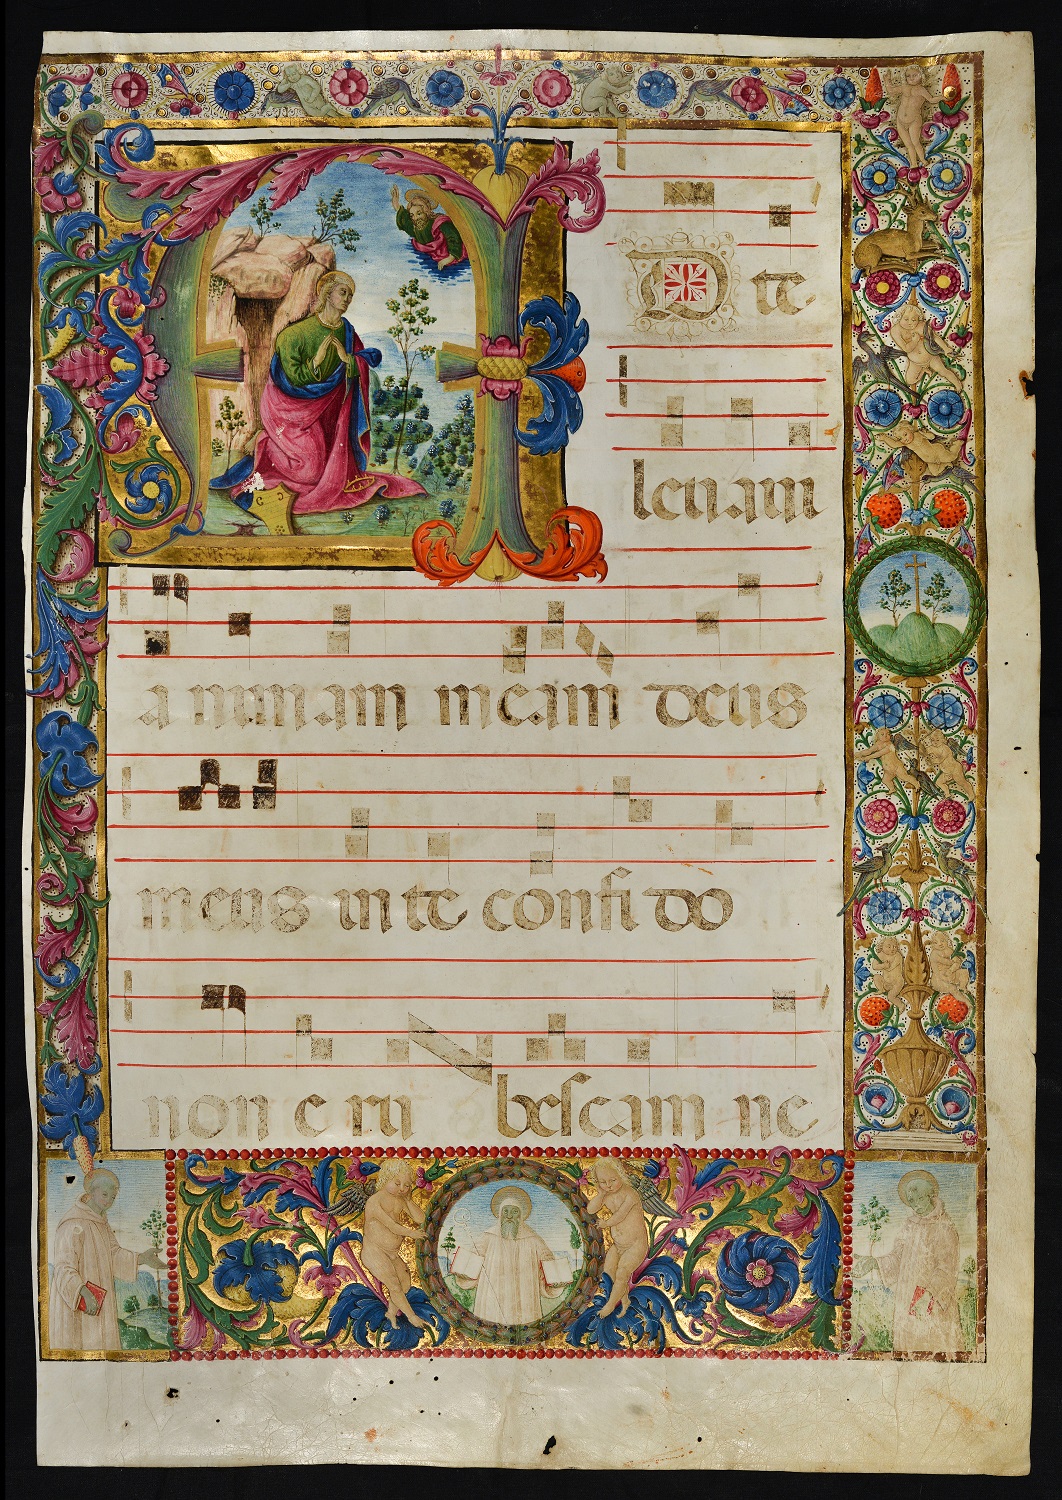 AD te
levam
animam meam deus
meus in te confido
non erubescam ne